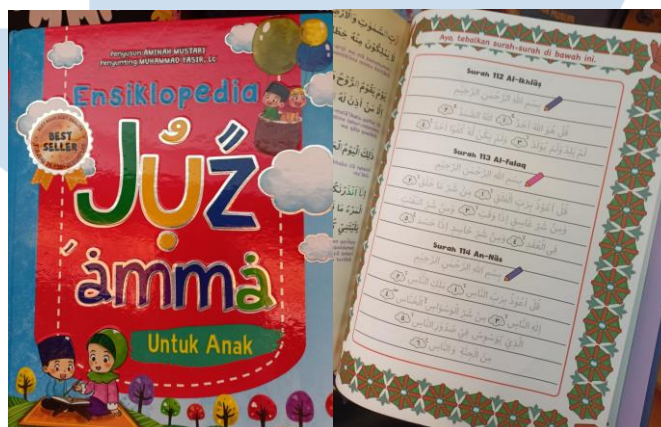 Penyusun: AMINAH MUSTARI
Penyunting: MUHAMMAD YASIR, Lc
Ensiklopedia
BEST
SELLER
Juz
'amma
Untuk Anak
Ayo, tebalkan surah-surah di bawah ini.
Surah 112 Al-Ikhlāṣ
بِسْمِ اللّٰهِ الرَّحْمٰنِ الرَّحِيْمِ
قُلْ هُوَ اللّٰهُ اَحَدٌ ١ اَللّٰهُ الصَّمَدُ ٢
لَمْ يَلِدْ وَلَمْ يُوْلَدْ ٣ وَلَمْ يَكُنْ لَّهٗ كُفُوًا اَحَدٌ ٤
Surah 113 Al-Falaq
بِسْمِ اللّٰهِ الرَّحْمٰنِ الرَّحِيْمِ
قُلْ اَعُوْذُ بِرَبِّ الْفَلَقِ ١ مِنْ شَرِّ مَا خَلَقَ ٢
وَمِنْ شَرِّ غَاسِقٍ اِذَا وَقَبَ ٣ وَمِنْ شَرِّ النَّفّٰثٰتِ
فِى الْعُقَدِ ٤ وَمِنْ شَرِّ حَاسِدٍ اِذَا حَسَدَ ٥
Surah 114 An-Nās
بِسْمِ اللّٰهِ الرَّحْمٰنِ الرَّحِيْمِ
قُلْ اَعُوْذُ بِرَبِّ النَّاسِ ١ مَلِكِ النَّاسِ ٢
اِلٰهِ النَّاسِ ٣ مِنْ شَرِّ الْوَسْوَاسِ الْخَنَّاسِ ٤
الَّذِيْ يُوَسْوِسُ فِيْ صُدُوْرِ النَّاسِ ٥
مِنَ الْجِنَّةِ وَالنَّاسِ ٦